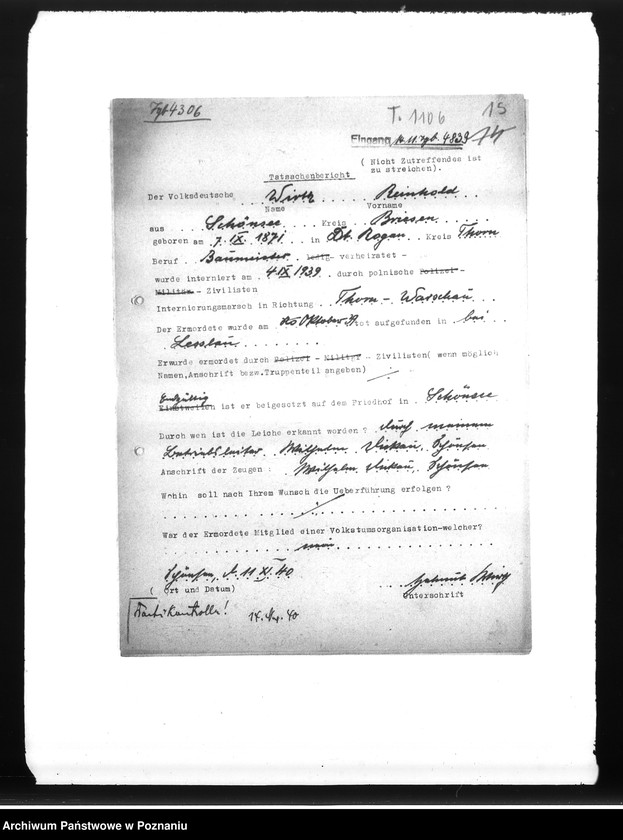 Tgb 4306
T. 1106
15
Eingang 14.11. Tgb. 4839
14
( Nicht Zutreffendes ist
zu streichen).
Tatsachenbericht
Der Volksdeutsche Wirth Reinhold
Name Vorname
aus Schönsee Kreis Briesen
geboren am 7. IX. 1871 in Dt. Rogau Kreis Thorn
Beruf Baumeister ledig- verheiratet -
wurde interniert am 4 IX 1939 durch polnische Polizei-
Militär - Zivilisten
Internierungsmarsch in Richtung Thorn - Warschau
Der Ermordete wurde am Oktober tot aufgefunden in bei
Lesslau
Erwurde ermordet durch Polizei - Militär - Zivilisten( wenn möglich
Namen,Anschrift bezw.Truppenteil angeben)
Endgültig
Einstweilen ist er beigesetzt auf dem Friedhof in Schönsee
Durch wen ist die Leiche erkannt worden ? durch meinem
Betriebsleiter Wilhelm Schönsee
Anschrift der Zeugen : Wilhelm Schönsee
Wohin soll nach Ihrem Wunsch die Ueberführung erfolgen ?
War der Ermordete Mitglied einer Volkstumsorganisation-welcher?
nein
Schönsee, d. 11 XI. 40
( Ort und Datum)
Helmut Wirth
Unterschrift
14. Nov. 40
Archiwum Państwowe w Poznaniu